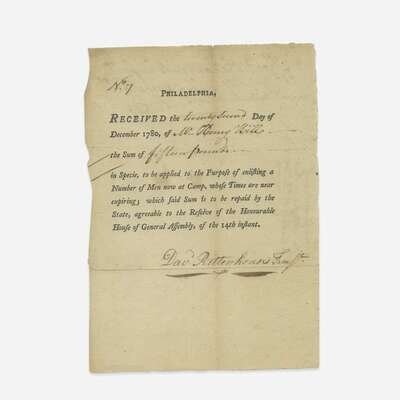 No. 7
PHILADELPHIA,
RECEIVED the twenty second Day of
December 1780, of Mr. Henry Hill
the Sum of fifteen pounds
in Specie, to be applied to the Purpose of enlisting a
Number of Men now at Camp, whose Times are near
expiring; which said Sum is to be repaid by the
State, agreeable to the Resolve of the Honourable
House of General Assembly, of the 14th instant.
Davd Rittenhouse Treasr.